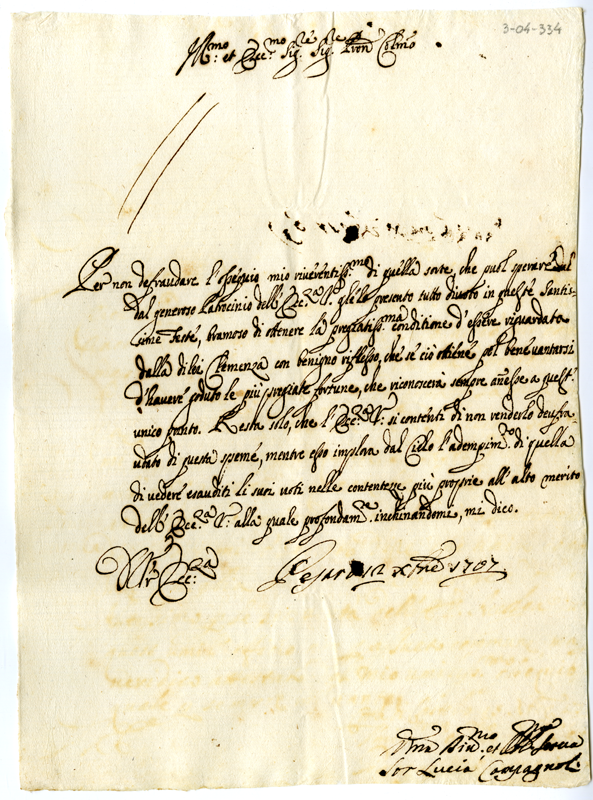 3-04-334
Ill.mo et Ecc.mo Sig.re Sig.re Pron Col.mo
Per non defraudare l'ossequio mio riverentiss.mo di quella sorte, che può sperare
dal generoso Patrocinio dell'Ecc.za V.a glelo presento tutto divoto in queste Santis-
sime feste, bramoso di ottenere la pregiatiss.ma conditione d'essere riguardata
dalla di lei Clemenza con benigno riflesso, che se ciò ottiene può bene vantarsi
d'havere goduto le più pregiate fortune, che riconoscerà sempre annesse a quest'
unico punto. Resta solo, che l'Ecc.za V.a si contenti di non renderlo defrau-
dato di questa speme, mentre esso implora dal Cielo l'adempim.to di quella
di vedere esauditi li suoi voti nelle contentezze più proprie all'alto merito
dell'Ecc.za V.a alla quale profondam.e inchinandome, mi dico.
V.ra Ecc.za
Pesaro 12 Xbre 1707
Dev.ma et Obb.ma Serva
Sor Lucia Campagnoli